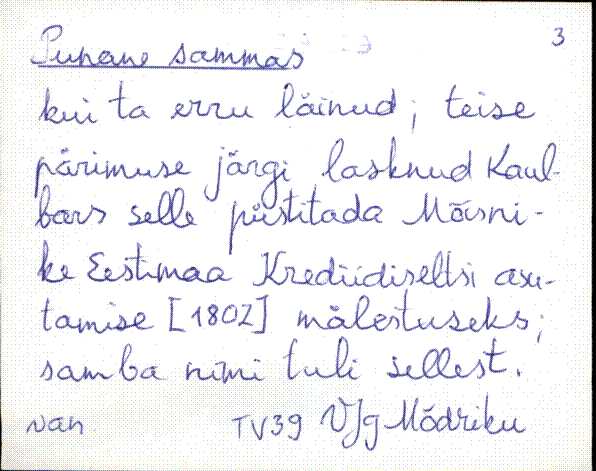 Punane sammas 3
kui ta erru läinud; teise
pärimuse järgi lasknud Kaul-
bars selle püstitada Mõisni-
ke Eestimaa Krediidiseltsi asu-
tamise [1802] mälestuseks;
samba nimi tuli sellest.
van TV39 VJg Mõdriku